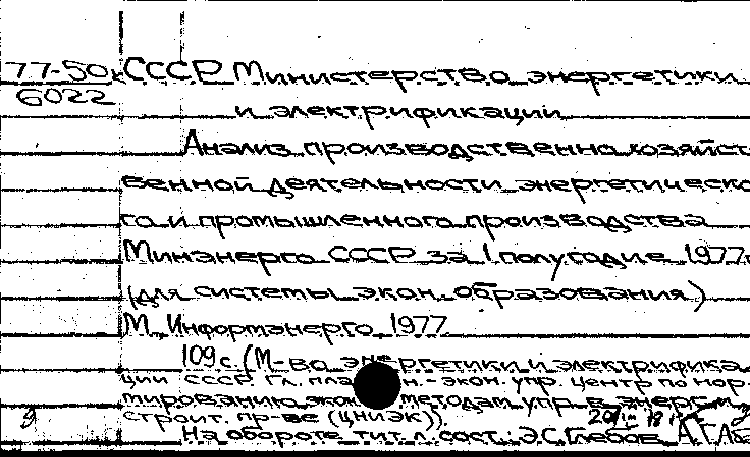 77-50к СССР Министерство энергетики
6022
и электрификации
Анализ производственно хозяйст
венной деятельности энергетическо
го и промышленного производства
Минэнерго СССР за 1 полугодие 1977г
(для системы экон. образования)
М., Информэнерго, 1977
109с. (М-во энергетики и электрифика
ции СССР. Гл. пла н.-экон. упр. Центр по нор
мированию экон методам упр. в энерг. и
строит. пр-ве (ЦНИЭК)).
9
На обороте тит. л. сост.: Э.С. Глебов, А.Г.